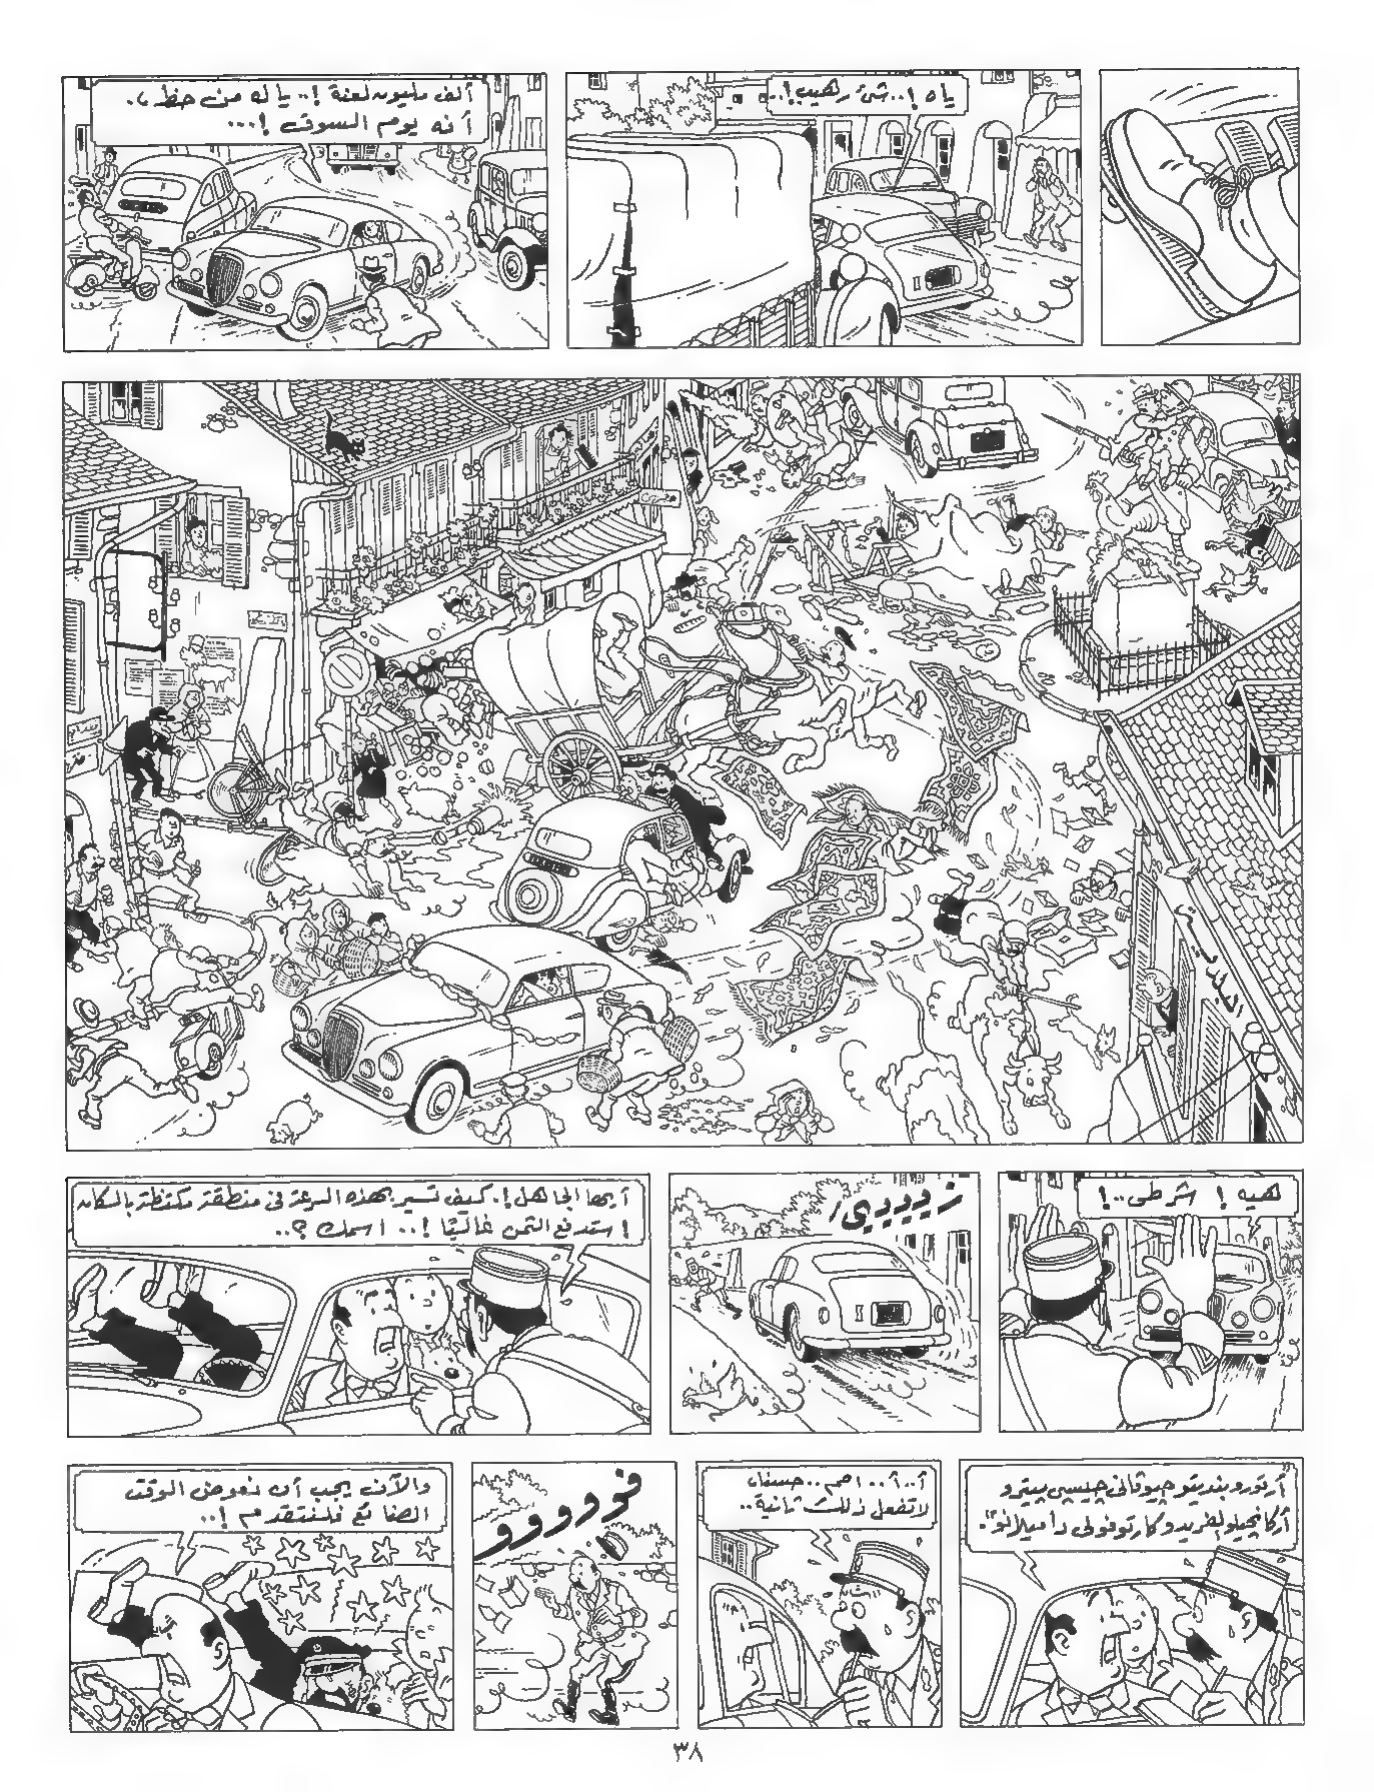 ياه !..شئ رهيب !..
ألف مليون لعنة !.. ياله من حظ..
أنه يوم السوق !...
البلدية
هيه ! شرطى..!
ززييييي!
أيها الجاهل !.كيف تسير بهذه السرعة فى منطقة مكتظة بالسكان
! ستدفع الثمن غاليًا !.. اسمك ؟..
"أرتورو بنديتو جيوڤانى چيسيبى بيترو
أركانچيلو الفريدو كارتوفولى دا ميلانو"
أ..أ.. احم..حسنًا
لا تفعل ذلك ثانية..
فووووو
والآن يجب أن نعوض الوقت
الضائع فلنتقدم !..
٣٨